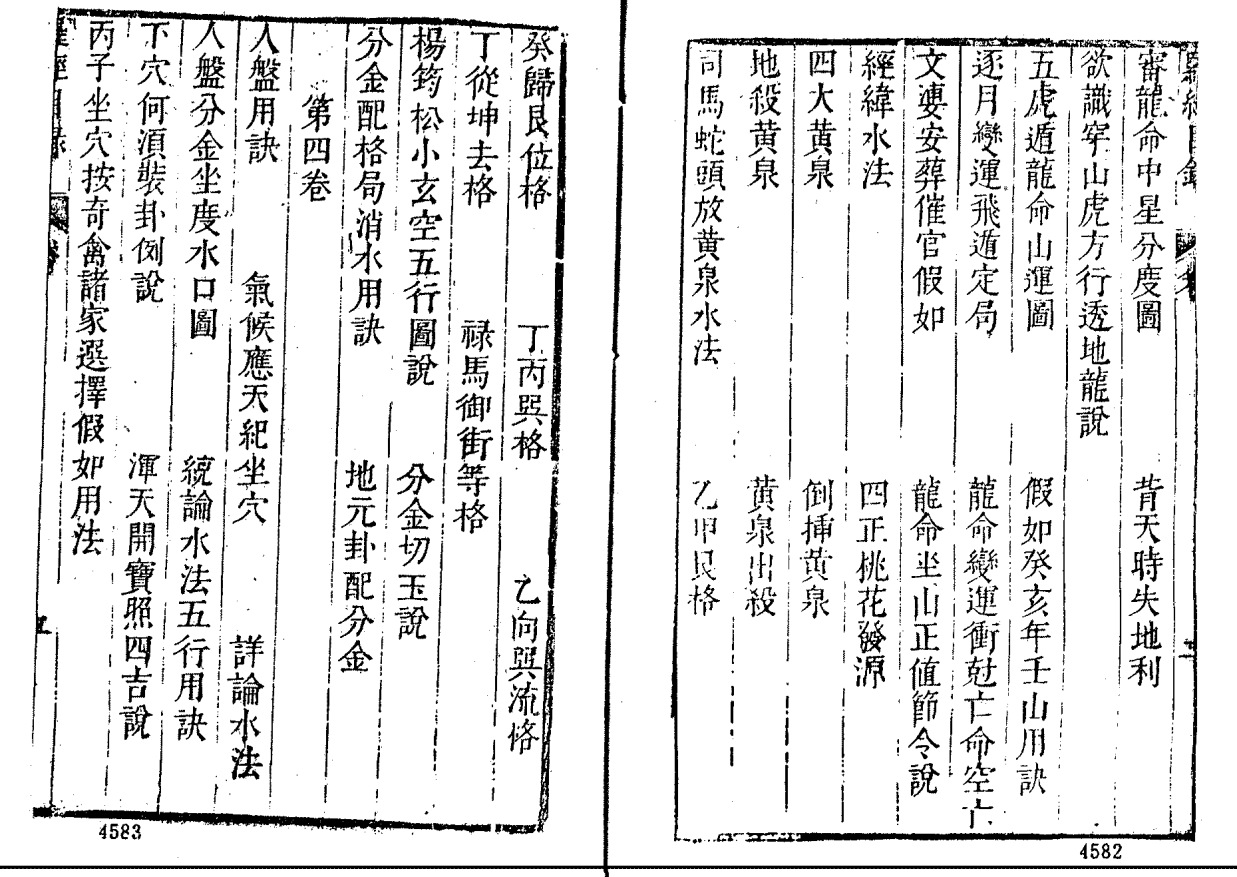 羅經目錄
審龍命中星分度圖 背天時失地利
欲識穿山虎方行透地龍說
五虎遁龍命山運圖 假如癸亥年壬山用訣
逐月變運飛遁定局 龍命變運衝尅亡命空亡
文婁安葬催官假如 龍命坐山正值節令說
經緯水法 四正桃花發源
四大黃泉 倒揷黃泉
地殺黃泉 黃泉出殺
司馬蛇頭放黃泉水法 乙甲艮格
4582
癸歸艮位格 丁丙巽格 乙向巽流格
丁從坤去格 祿馬御街等格
楊筠松小玄空五行圖說 分金切玉說
分金配格局消水用訣 地元卦配分金
第四卷
人盤用訣 氣候應天紀坐穴 詳論水法
人盤分金坐度水口圖 統論水法五行用訣
下穴何須裝卦例說 渾天開寶照四吉說
丙子坐穴按奇禽諸家選擇假如用法
4583